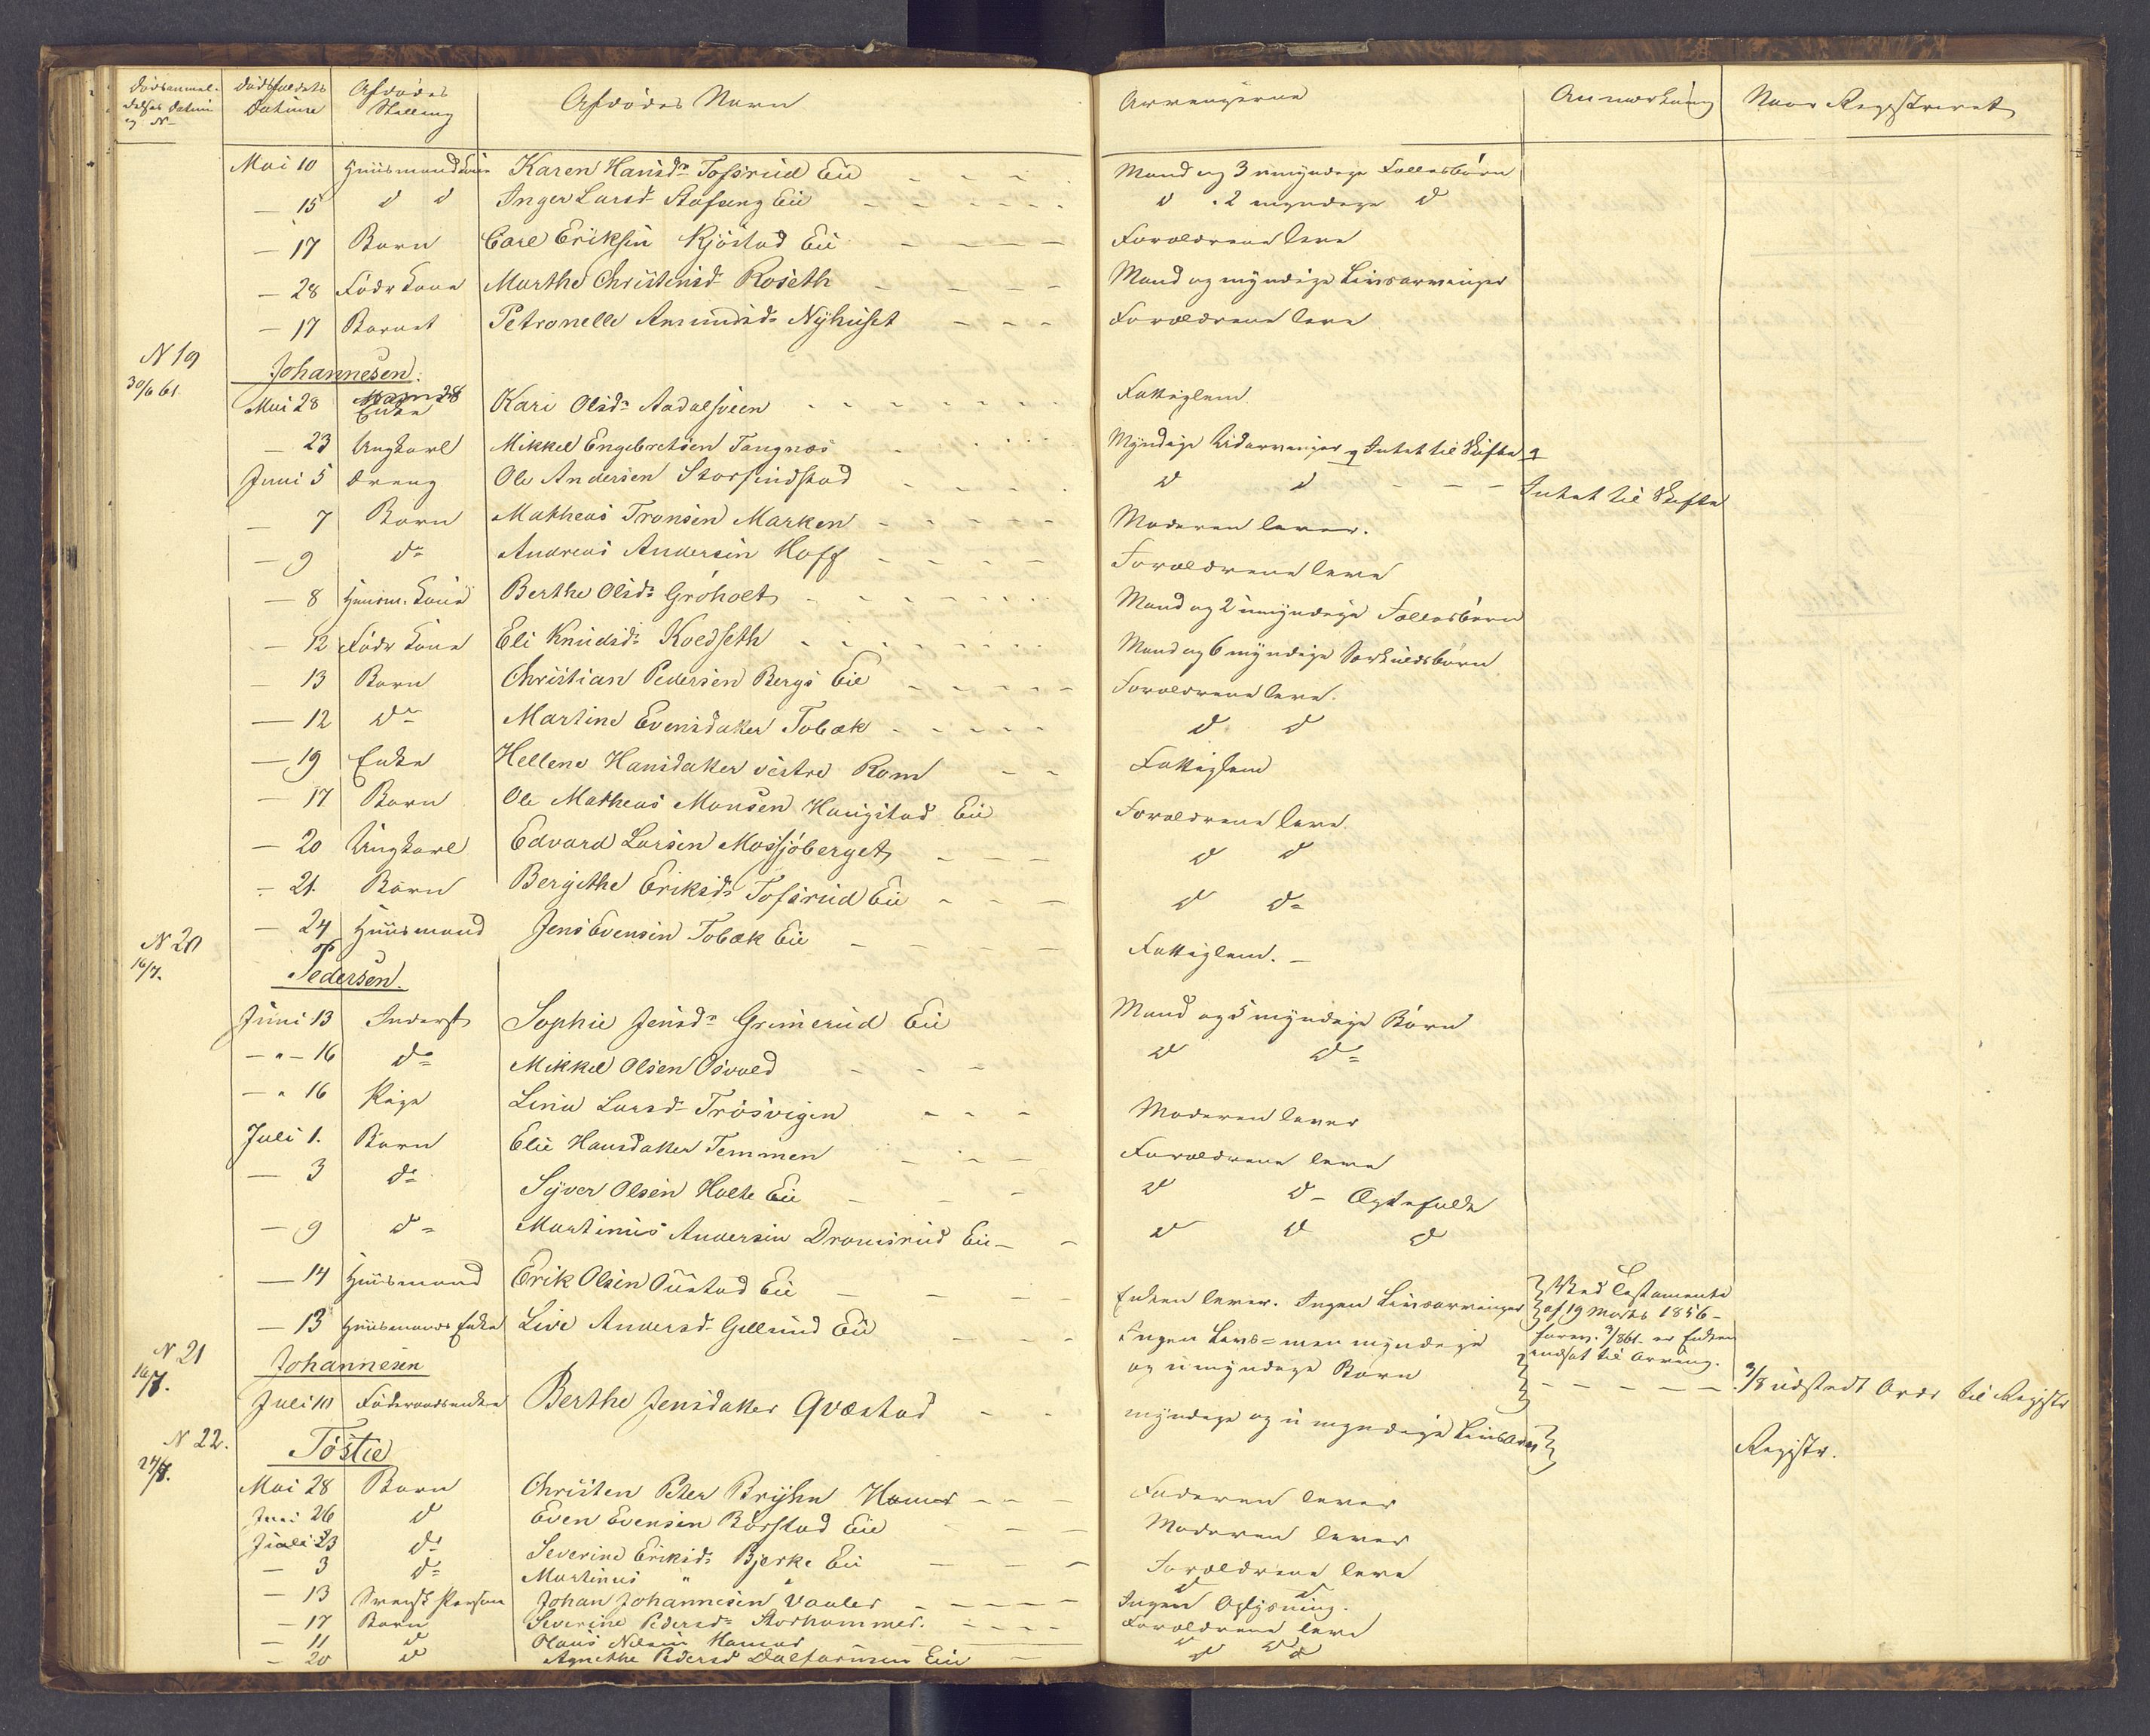 Dödsanmel- Dödsfaldets Afdödes Afdödes Navn Arvingerne Anmærkning Naar Registreret
delses Datum Datum Stilling
og N-
Mai 10 Huusmandskone Karen Hansd. Tofsrud Eie Mand og 3 umyndige Fællesbörn
— 15 d d Inger Larsd. Stafseng Eie d . 2 myndige d
— 17 Barn Carl Eriksen Kjöstad Eie Forældrene leve
— 28 Föder Kone Marthe Christensd. Roseth Mand og myndige Livsarvinger
— 17 Barnet Petronelle Amundsd. Nyhuset Forældrene leve
N 19 Johannesen.
30/6 61.
Mai 28 Enke Kari Olsd. Aadalsveen Fattiglem.
— 23 Ungkarl Mikkel Engebretsen Tangnæs Myndige Udarvinger Intet til Skifte
Juni 5 Dreng Ole Andersen Storsindstad d d Intet til Skifte
— 7 Barn Matheas Tronsen Marken Moderen lever.
— 9 do Andreas Andersen Hoff Forældrene leve
— 8 Huusm. Kone Berthe Olsd. Gröholt Mand og 2 umyndige Fællesbörn
— 12 Föder Kone Eli Knudsd. Kvedseth Mand og 6 myndige Særkuldsbörn
— 13 Barn Christian Pedersen Bergs Eie Forældrene leve.
— 12 do Martine Evensdatter Tobæk d d
— 19 Enke Hellene Hansdatter vestre Rom Fattiglem
— 17 Barn Ole Matheas Monsen Haugstad Eie Forældrene leve.
— 20 Ungkarl Edvard Larsen Mossjöberget d d
— 21. Barn Bergethe Eriksd. Tofsrud Eie d do
— 24 Huusmand Jens Evensen Tobæk Eie Fattiglem. —
N 20 Pedersen.
16/7.
Juni 13 Inderst Sophie Jensd. Grimerud Eie Mand og 5 myndige Börn
— " — 16 do Mikkel Olsen Osvold d do
— " 16 Pige Lina Larsd. Trosvigen Moderen lever
Juli 1. Barn Elie Hansdatter Temmen Forældrene leve
— 3 do Syver Olsen Holte Eie d d — Ægtefolk
— 9 do Martinus Andersen Dromsrud Eie — d d d
— 14 Huusmand Erik Olsen Oustad Eie Enken lever. Ingen Livsarvinger Ved Testamente
af 19 Marts 1856 —
— 13 Huusmands Enke Live Andersd. Gillund Eie Ingen Livs= men myndige er Enken
indsat til Arving.
N 21 Johannesen og umyndige Börn
16/7.
Juli 10 Föderaadsenke Berthe Jensdatter Qvæstad myndige og umyndige Livsarv 9/8 udstedt Ordr til Registr
N 22. Töstie Registr.
24/7.
Mai 28 Barn Christen Peter Bryhn Hamar Faderen lever
Juni 26 d Even Evensen Börstad Eie Moderen lever
Juli 23 do Severine Eriksd. Bjerke Eie Forældrene leve
— 3 do Martinus " " d d
— 13 Svensk Person Johan Johannesen Vauler Ingen Oplysning.
— 17 Barn Severine Pedersd. Storhammer. Forældrene leve
— 11 d Olaus Nilsen Hamar d d
— 20 d Agnethe Pedersd Dalfarmen Eie d d